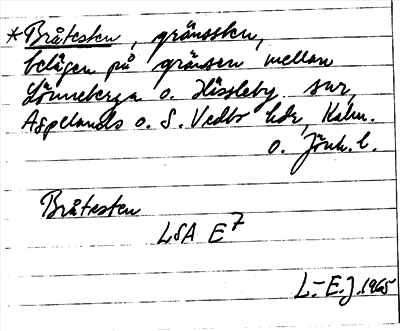 *Bråtesten, gränssten,
belägen på gränsen mellan
Lönneberga o. Hässleby snr,
Aspelands o. S. Vedbo hdr, Kalm.
o. Jönk. l.
Bråtesten
LSA E7
L-E.J. 1965